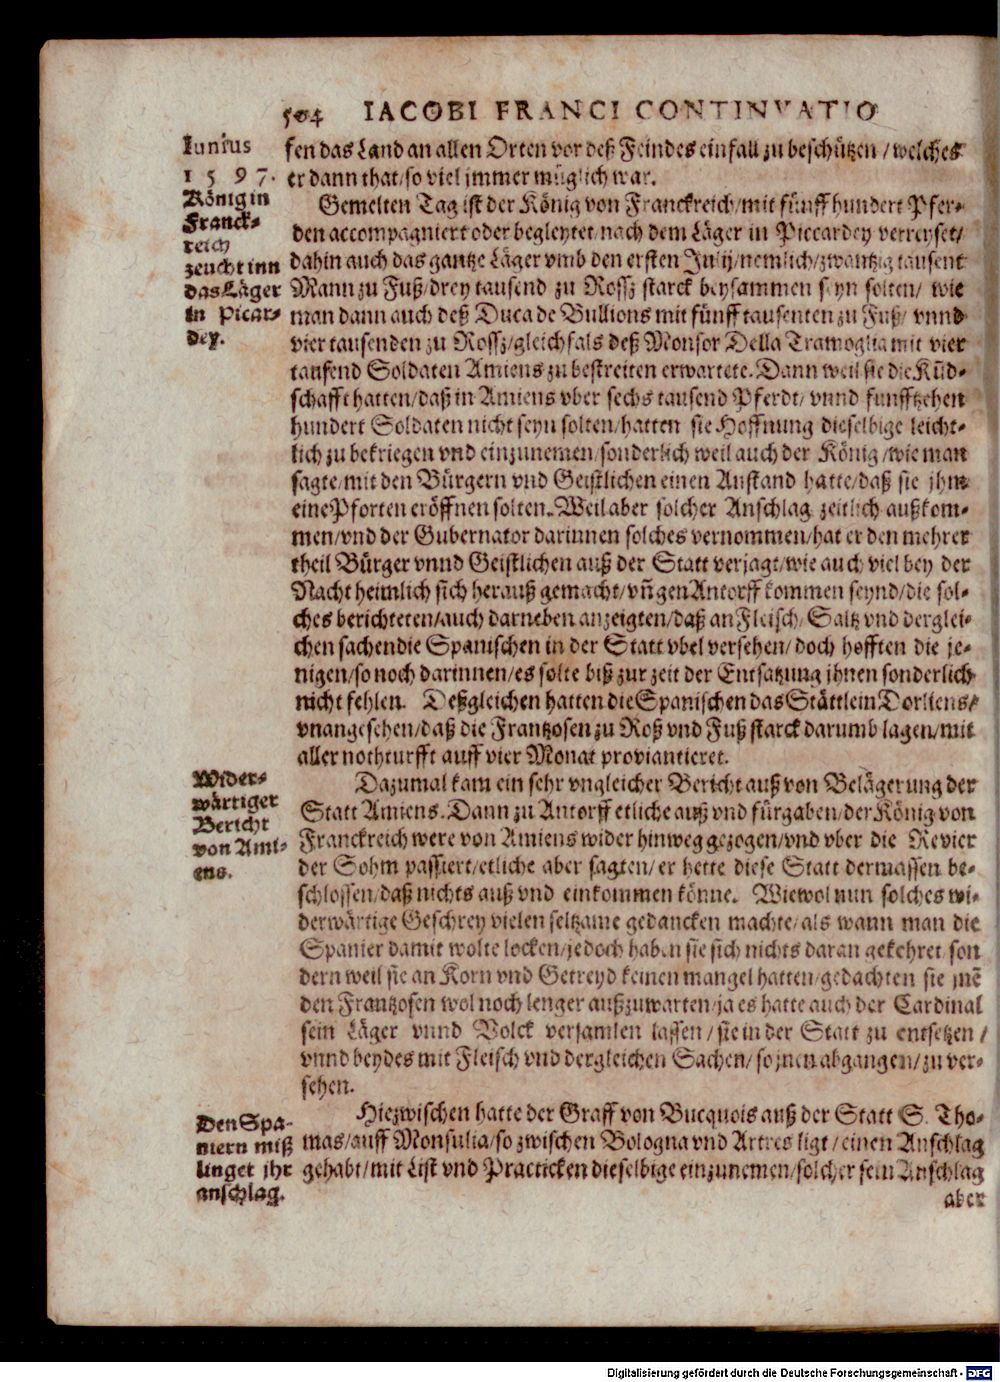 504 IACOBI FRANCI CONTINVATIO
Iunius
1597.
fen das Land an allen Orten vor deß Feindes einfall zu beschützen / welches
er dann that/so viel jmmer müglich war.
König in
Franck-
reich
zeucht inn
das Läger
in Picar-
dey.
Gemelten Tag ist der König von Franckreich/mit fünff hundert Pfer-
den accompagniert oder begleytet/nach dem Läger in Piccardey verreyset/
dahin auch das gantze Läger vmb den ersten Julij/nemlich/zwantzig tausent
Mann zu Fuß/drey tausend zu Rossz starck beysammen seyn solten/ wie
man dann auch deß Duca de Bullions mit fünff tausenten zu Fuß/ vnnd
vier tausenden zu Rossz/gleichfals deß Monsor Della Tramoglia mit vier
tausend Soldaten Amiens zu bestreiten erwartete. Dann weil sie die Kūd-
schafft hatten/daß in Amiens vber sechs tausend Pferdt/ vnnd funfftzehen
hundert Soldaten nicht seyn solten/hatten sie Hoffnung dieselbige leicht-
lich zu bekriegen vnd einzunemen/sonderlich weil auch der König/wie man
sagte/mit den Bürgern vnd Geistlichen einen Anstand hatte/daß sie jhm
eine Pforten eröffnen solten. Weil aber solcher Anschlag zeitlich außkom-
men/vnd der Gubernator darinnen solches vernommen/hat er den mehrer
theil Bürger vnnd Geistlichen auß der Statt verjagt/wie auch viel bey der
Nacht heimlich sich herauß gemacht/vn̄ gen Antorff kommen seynd/die sol-
ches berichteten/auch darneben anzeigten/daß an Fleisch/Saltz vnd derglei-
chen sachen die Spanischen in der Statt vbel versehen/doch hofften die je-
nigen/so noch darinnen/es solte biß zur zeit der Entsatzung jhnen sonderlich
nicht fehlen. Deßgleichen hatten die Spanischen das Stättlein Dorliens/
vnangesehen/daß die Frantzosen zu Roß vnd Fuß starck darumb lagen/mit
aller nothturfft auff vier Monat proviantieret.
Wider-
wärtiger
Bericht
von Ami-
ens.
Dazumal kam ein sehr vngleicher Bericht auß von Belägerung der
Statt Amiens. Dann zu Antorff etliche auß vnd fürgaben/der König von
Franckreich were von Amiens wider hinweg gezogen/vnd vber die Revier
der Sohm passiert/etliche aber sagten/er hette diese Statt dermassen be-
schlossen/daß nichts auß vnd einkommen könne. Wiewol nun solches wi-
derwärtige Geschrey vielen seltzame gedancken machte/als wann man die
Spanier damit wolte locken/jedoch haben sie sich nichts daran gekehret son
dern weil sie an Korn vnd Getreyd keinen mangel hatten/gedachten sie mē
den Frantzosen wol noch lenger außzuwarten/ja es hatte auch der Cardinal
sein Läger vnnd Volck versamlen lassen/sie in der Statt zu entsetzen/
vnnd beydes mit Fleisch vnd dergleichen Sachen/so jnen abgangen/zu ver-
sehen.
Den Spa-
niern miß
linget jhr
anschlag.
Hiezwischen hatte der Graff von Bucquois auß der Statt S. Tho-
mas/auff Monsulia/so zwischen Bologna vnd Artres ligt/einen Anschlag
gehabt/mit List vnd Practicken dieselbige einzunemen/solcher sein Anschlag
aber
Digitalisierung gefördert durch die Deutsche Forschungsgemeinschaft - DFG